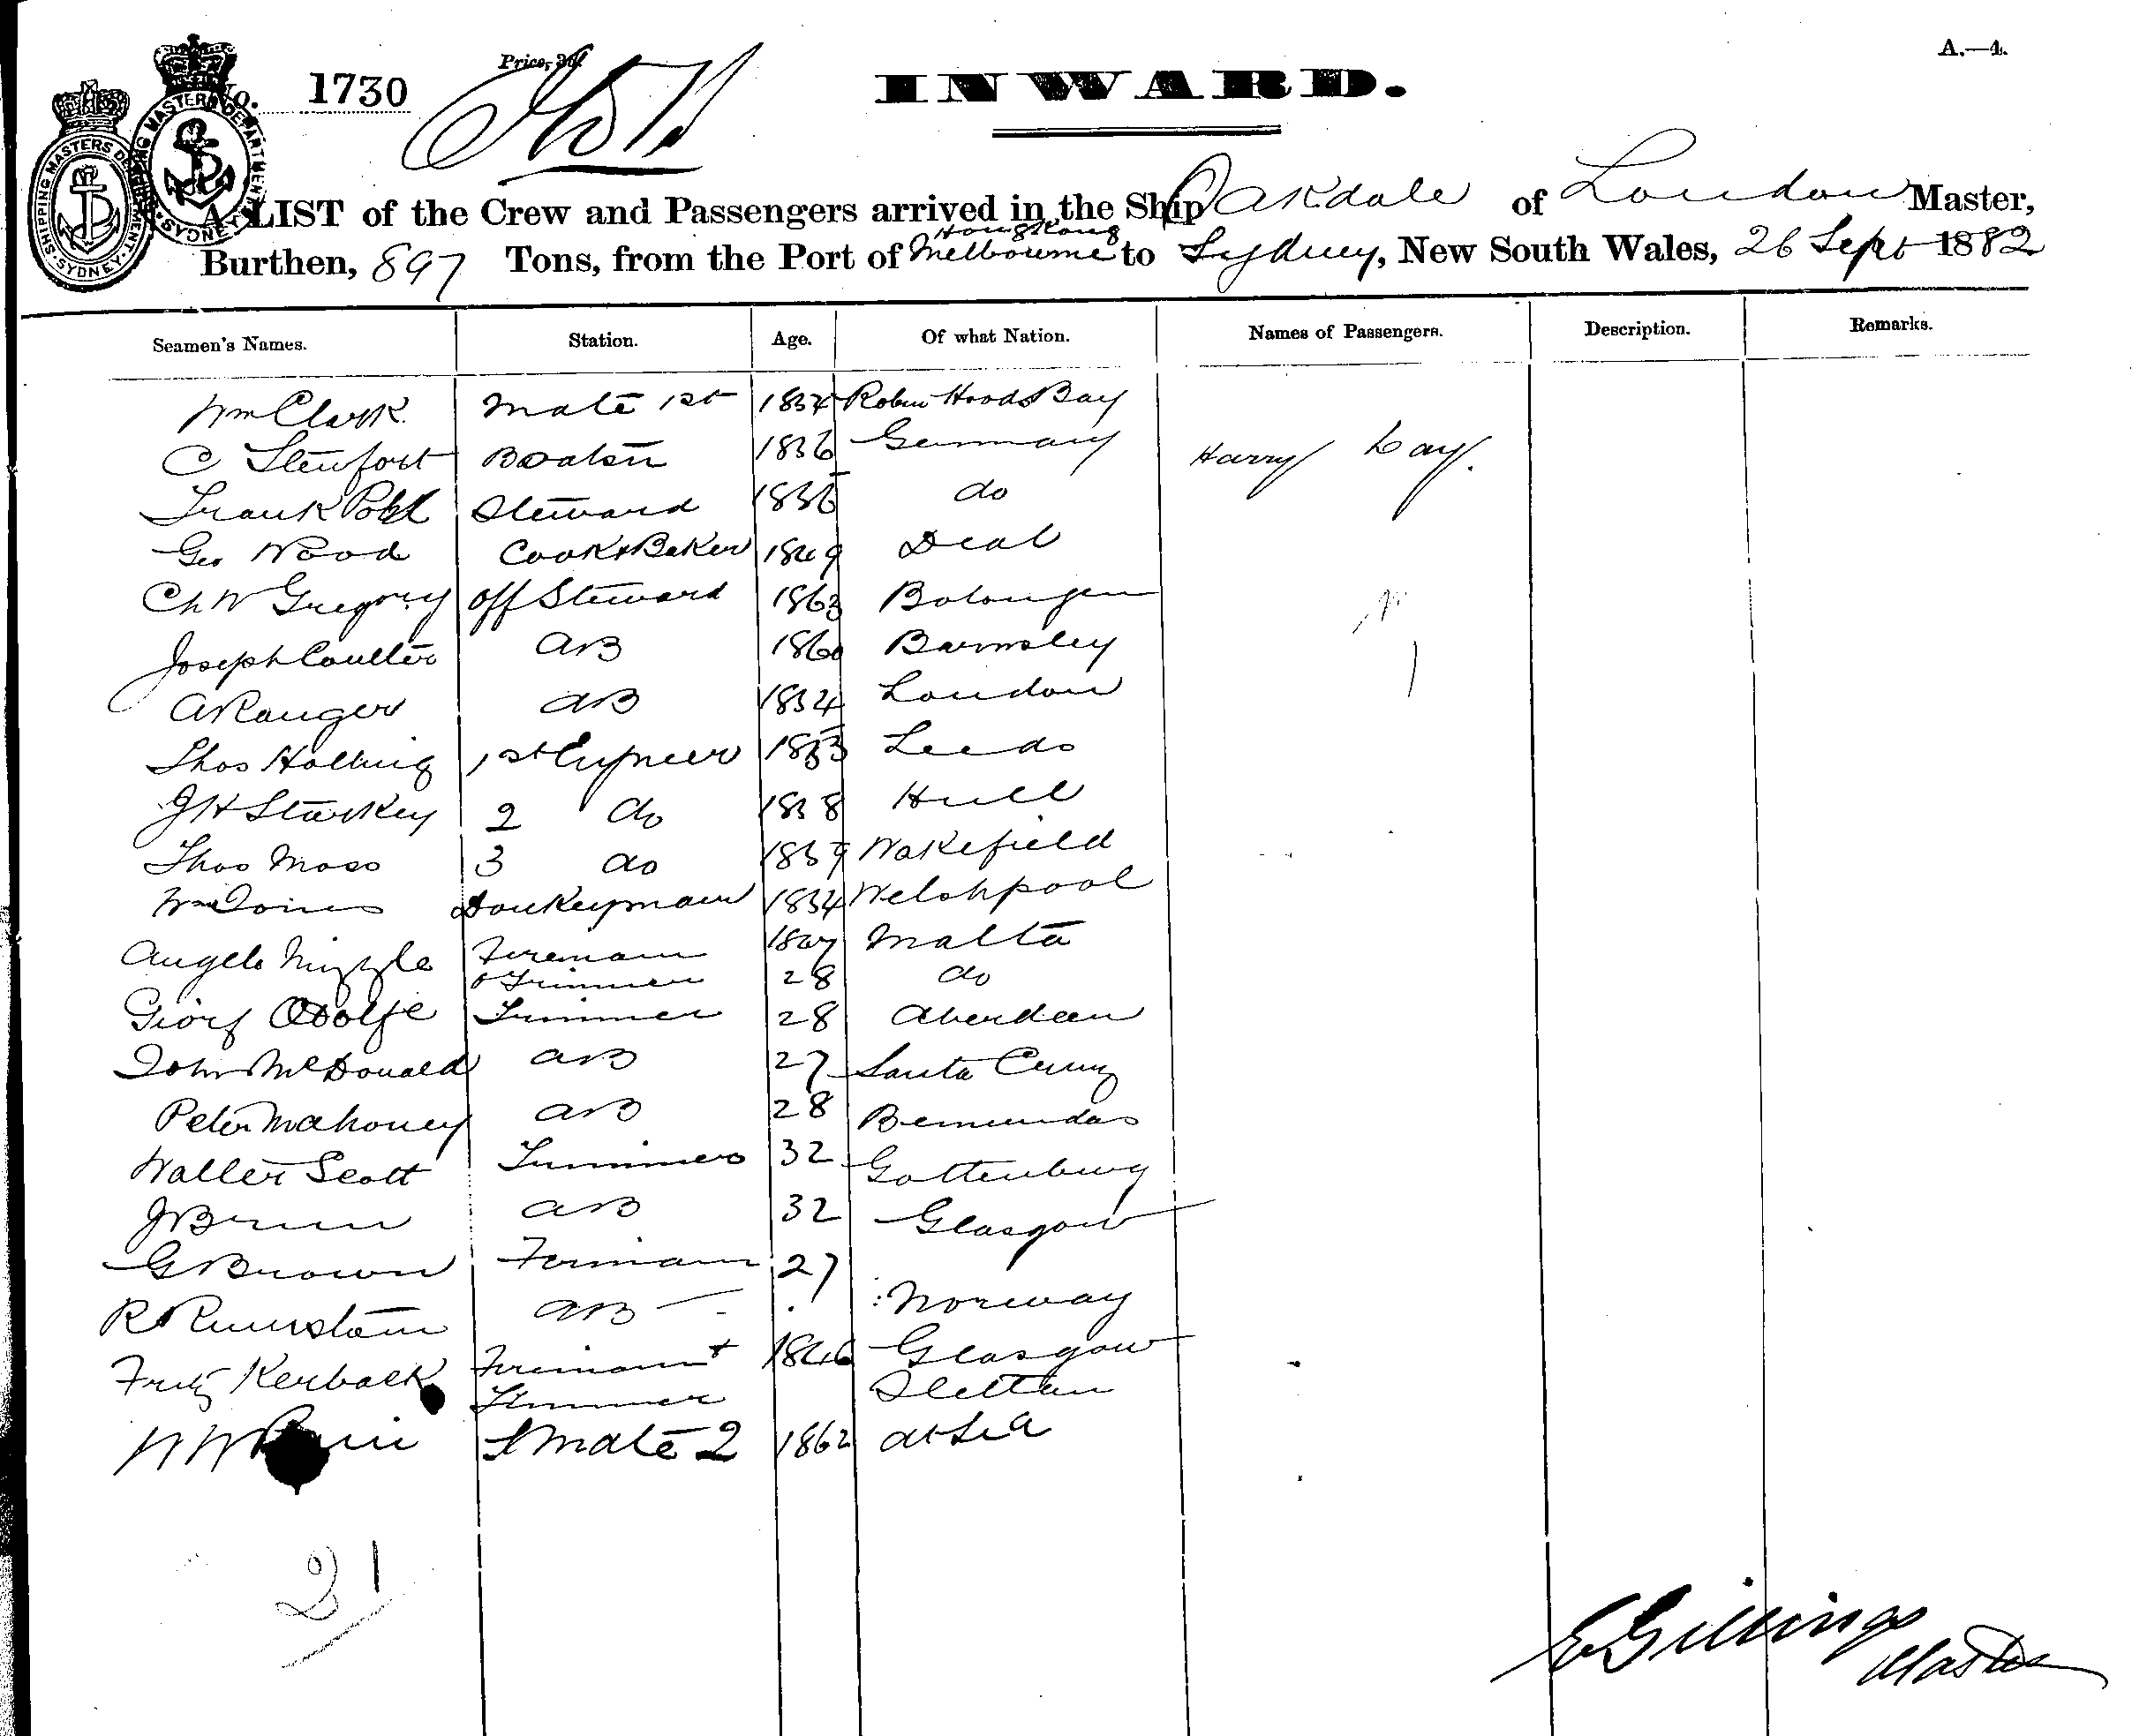 A.—4.
No. 1730
Price, 3d.
INWARD.
A LIST of the Crew and Passengers arrived in the Ship Oakdale of London Master,
Hong Kong
Burthen, 897 Tons, from the Port of Melbourne to Sydney, New South Wales, 26 Sept 1882
Seamen's Names. Station. Age. Of what Nation. Names of Passengers. Description. Remarks.
Wm Clark Mate 1st 1834 Robin Hoods Bay
C Steufort Boatsn 1836 Germany Harry Lay.
Frank Pohl Steward 1836 do
Geo Wood Cook & Baker 1849 Deal
Ch W Gregory Off Steward 1863
Joseph Coulter AB 1860 Barnsley
A Ranger AB 1834 London
Thos Holling 1st Engineer 1853 Leeds
J H Starkey 2 do 1838 Hull
Thos Moss 3 do 1859 Wakefield
Wm Donkeyman 1834 Welshpool
Angelo Fireman 1847 Malta
& Trimmer 28 do
Trimmer 28 Aberdeen
John McDonald AB 27 Santa Cruz
Peter Mahoney AB 28 Bermudas
Walter Scott Trimmers 32 Gottenburg
J AB 32 Glasgow
G Brown Fireman 27
R AB Norway
Fritz Kerback Fireman + 1846 Glasgow
Trimmer Stettan
W W Mate 2 1862 at Sea
21
E Gillings
Master
SHIPPING MASTERS DEPARTMENT SYDNEY
SHIPPING MASTERS DEPARTMENT SYDNEY